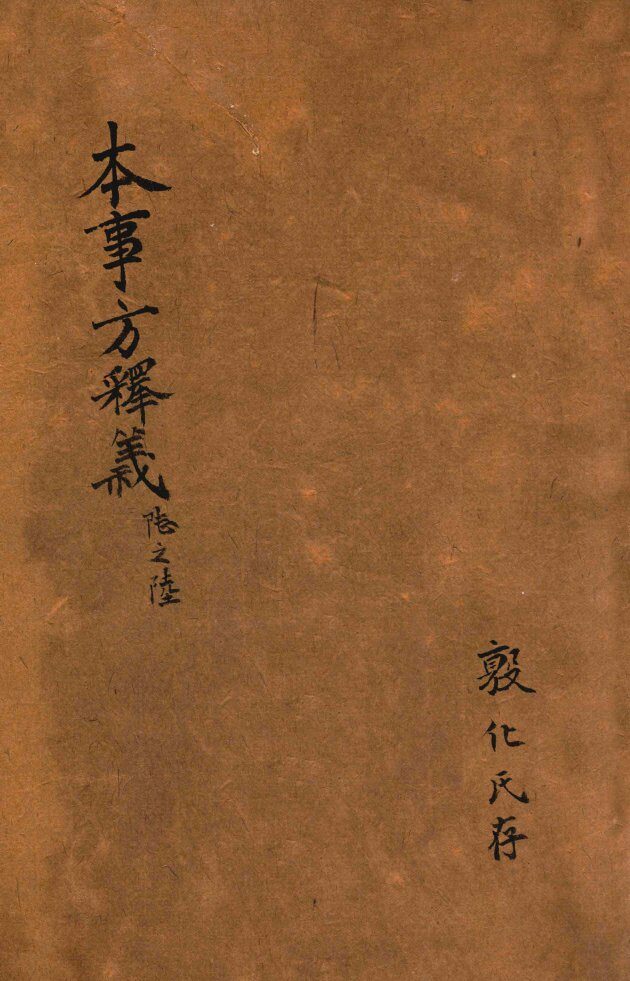 敦化氏存
本事方釋義
陸之陸